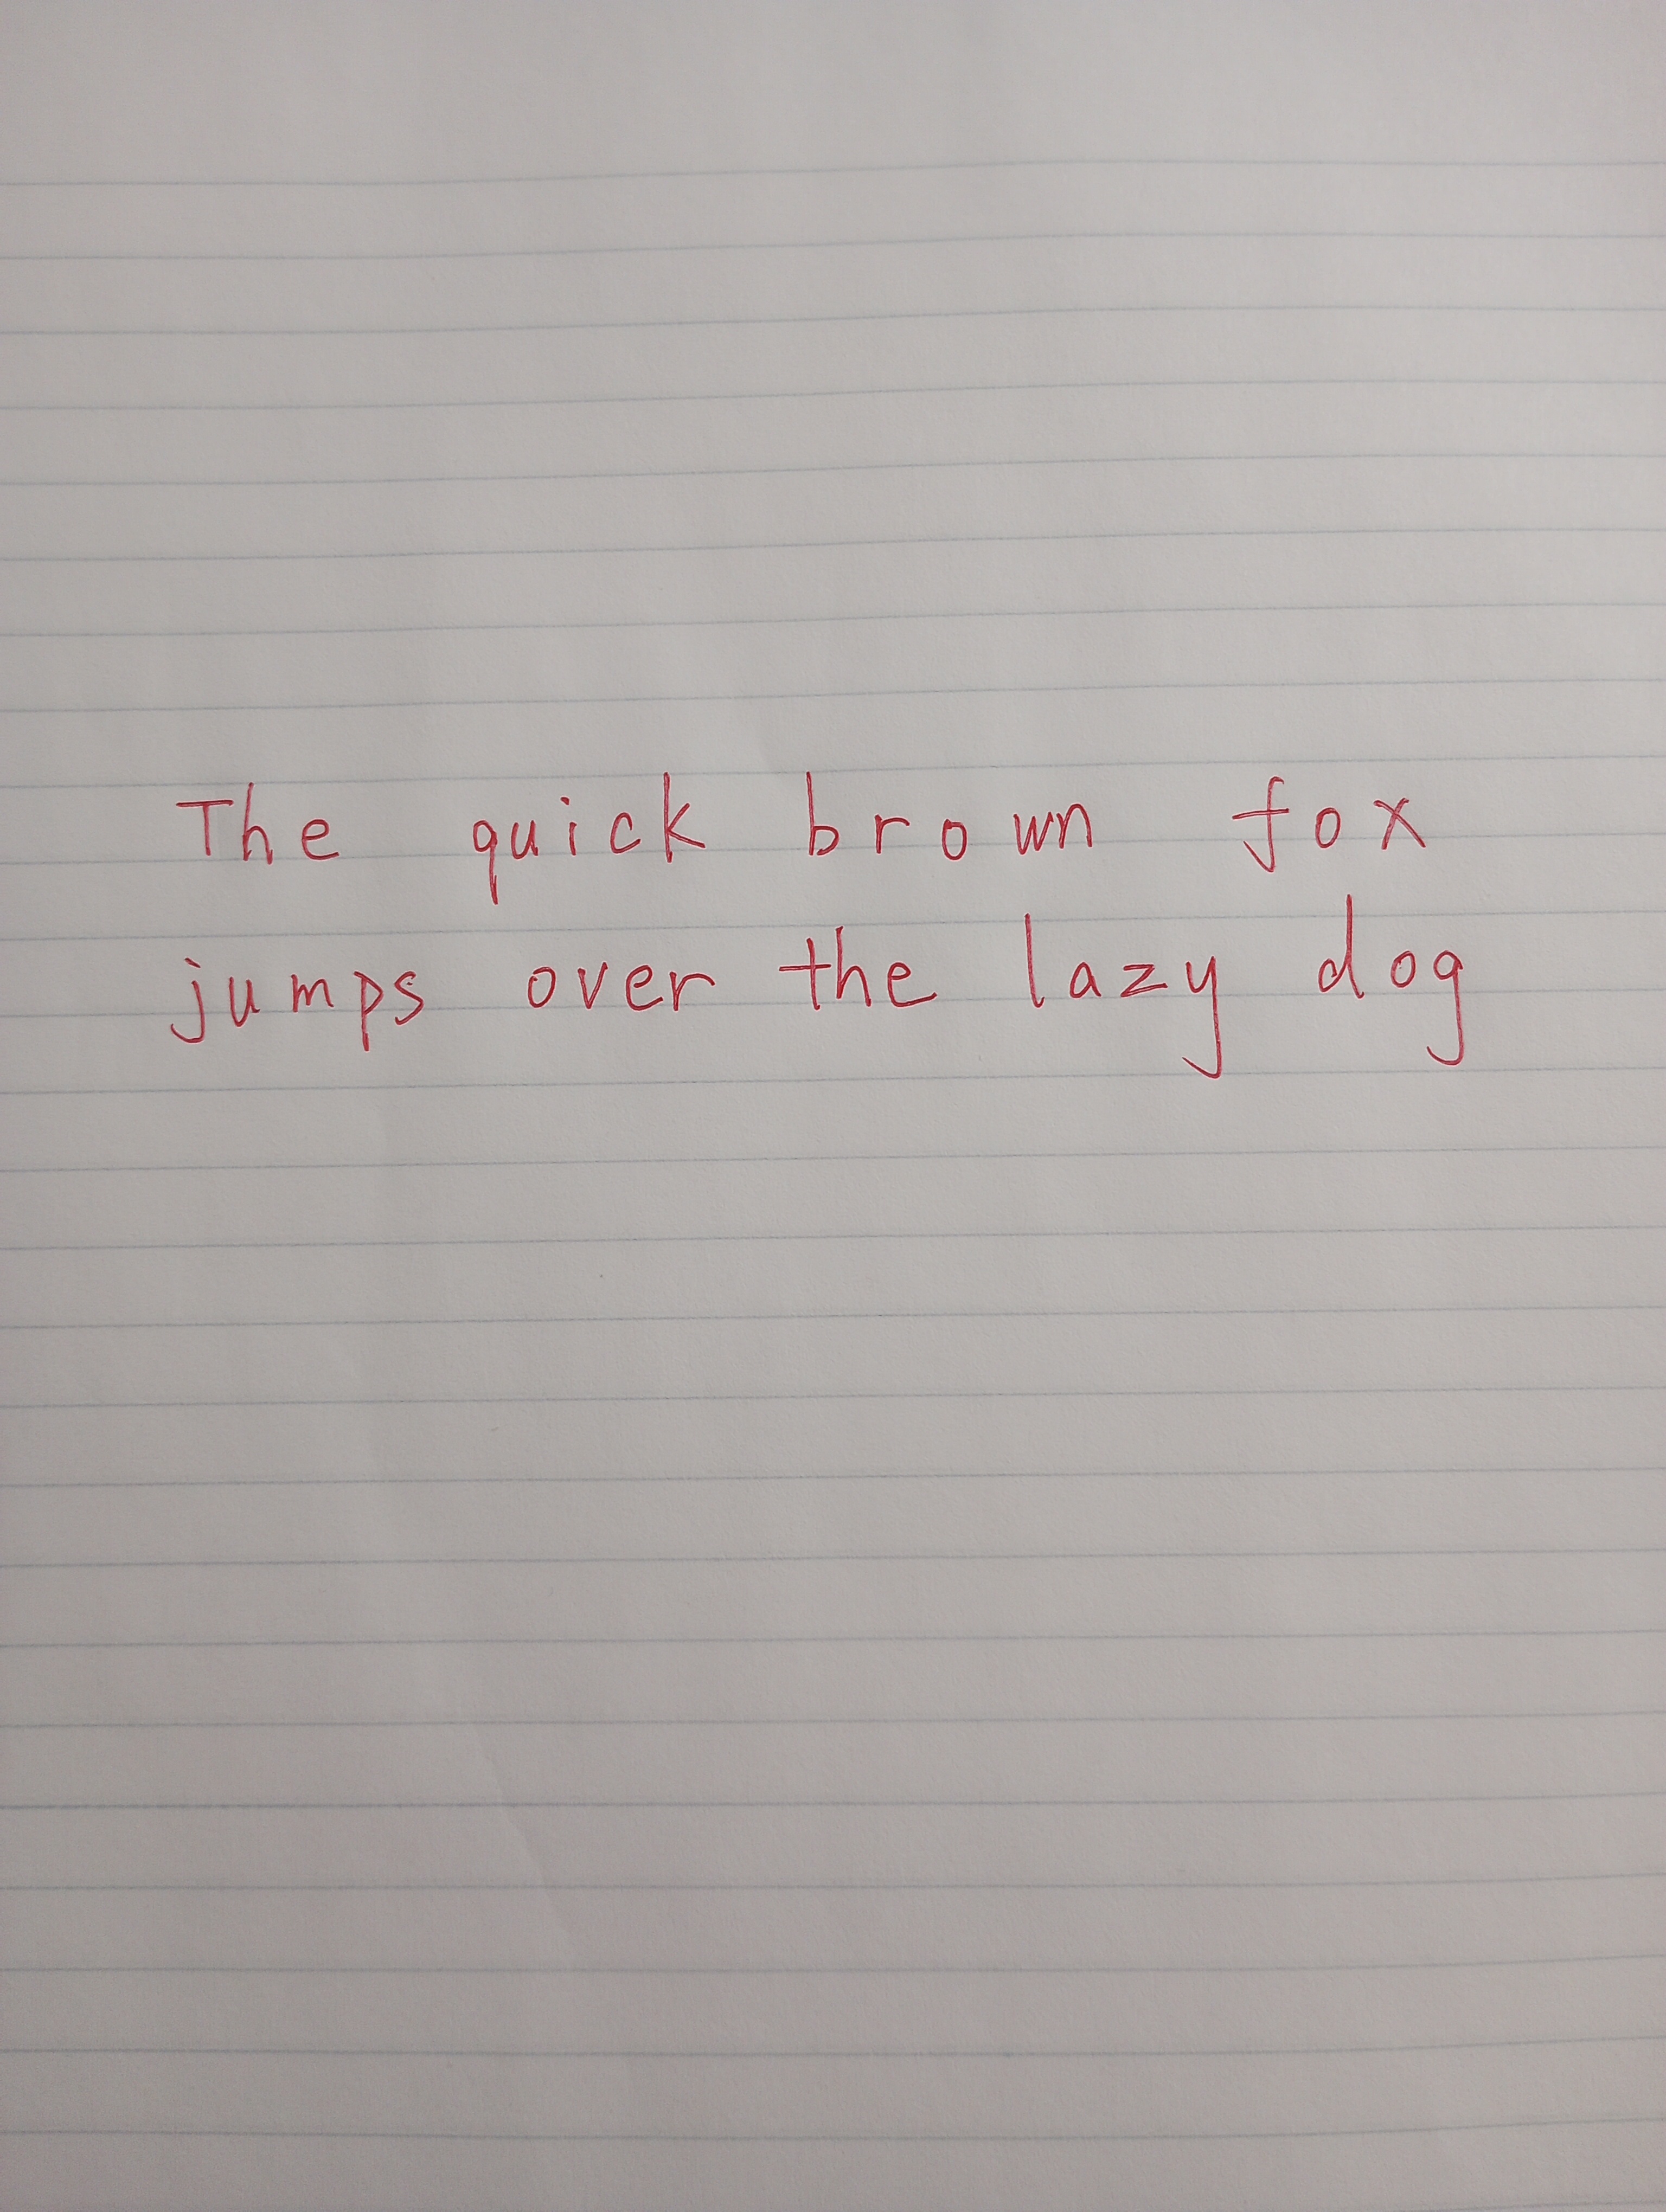 The quick brown fox
jumps over the lazy dog